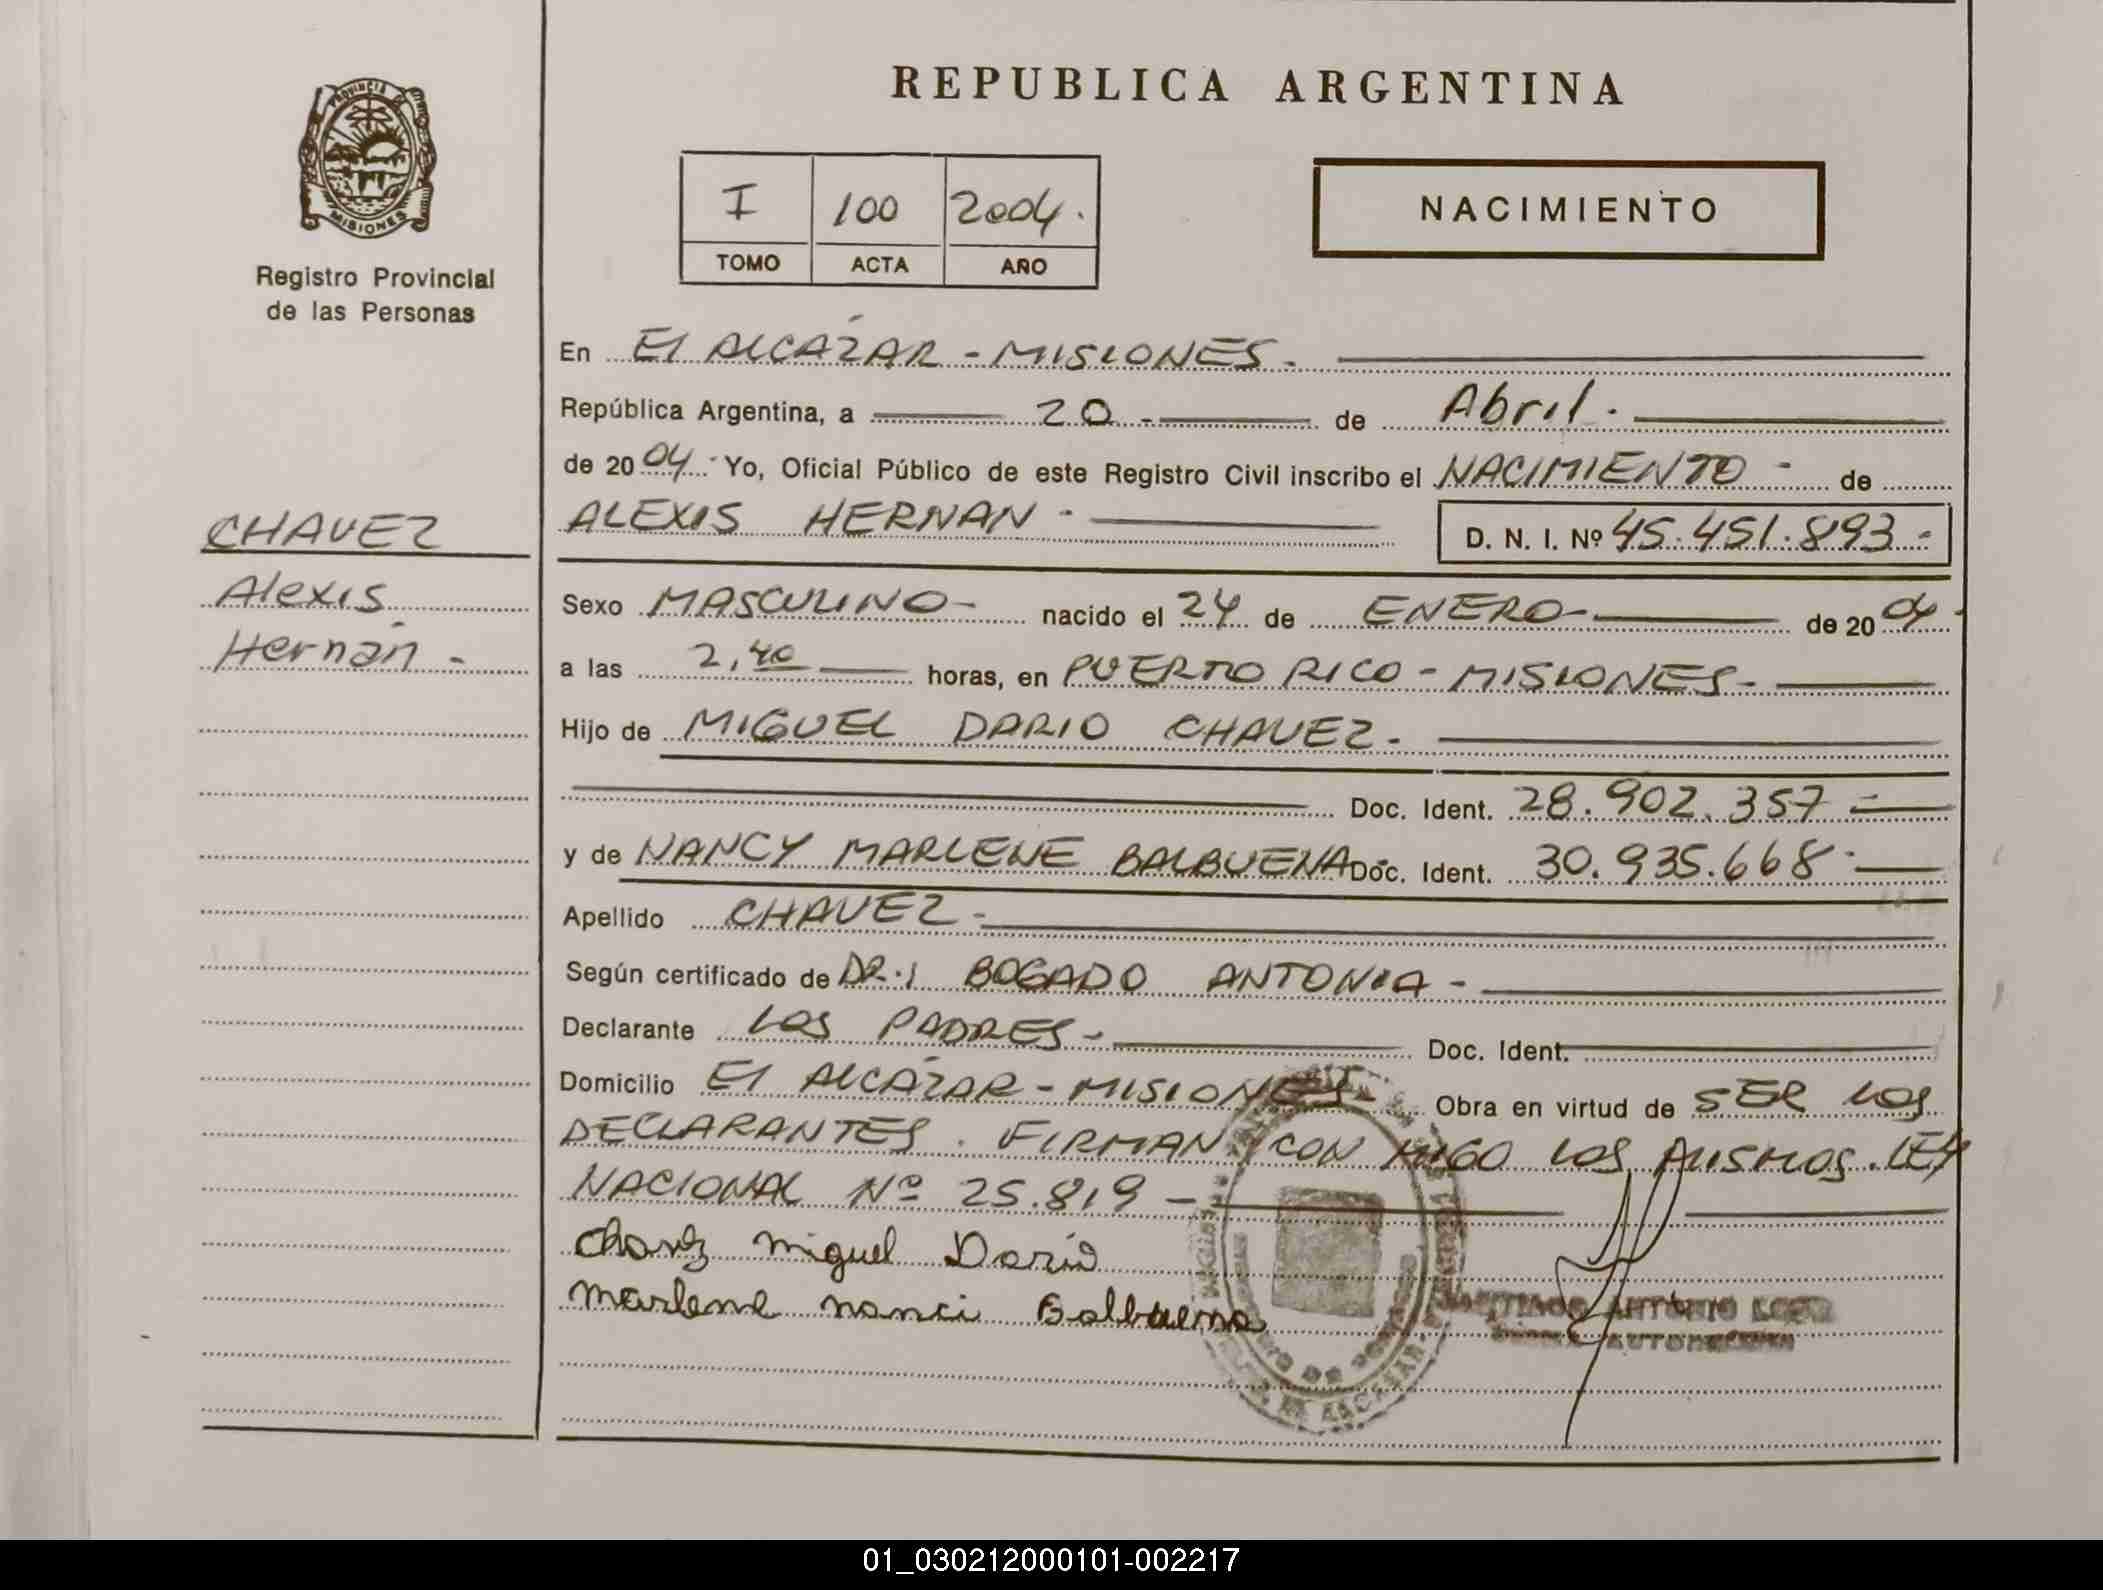 PROVINCIA DE
MISIONES
Registro Provincial
de las Personas
CHAVEZ
Alexis
Hernán -
REPUBLICA ARGENTINA
I 100 2004.
TOMO ACTA AÑO
NACIMIENTO
En El ALCÁZAR - MISIONES -
República Argentina, a 20 - de Abril.
de 2004 - Yo, Oficial Público de este Registro Civil inscribo el NACIMIENTO - de
ALEXIS HERNAN - D. N. I. Nº 45.451.893 -
Sexo MASCULINO - nacido el 24 de ENERO - de 2004 -
a las 2,40 horas, en PUERTO RICO - MISIONES -
Hijo de MIGUEL DARIO CHAVEZ -
Doc. Ident. 28.902.357 -
y de NANCY MARLENE BALBUENA Doc. Ident. 30.935.668 -
Apellido CHAVEZ -
Según certificado de DR.1 BOGADO ANTONIA -
Declarante LOS PADRES - Doc. Ident.
Domicilio El ALCÁZAR - MISIONES - Obra en virtud de SER LOS
DECLARANTES. FIRMAN CON MIGO LOS MISMOS. LEY
NACIONAL Nº 25.819 -
Chavez Miguel Dario
Marlene nanci Balbuena
ANTONIO
01_030212000101-002217